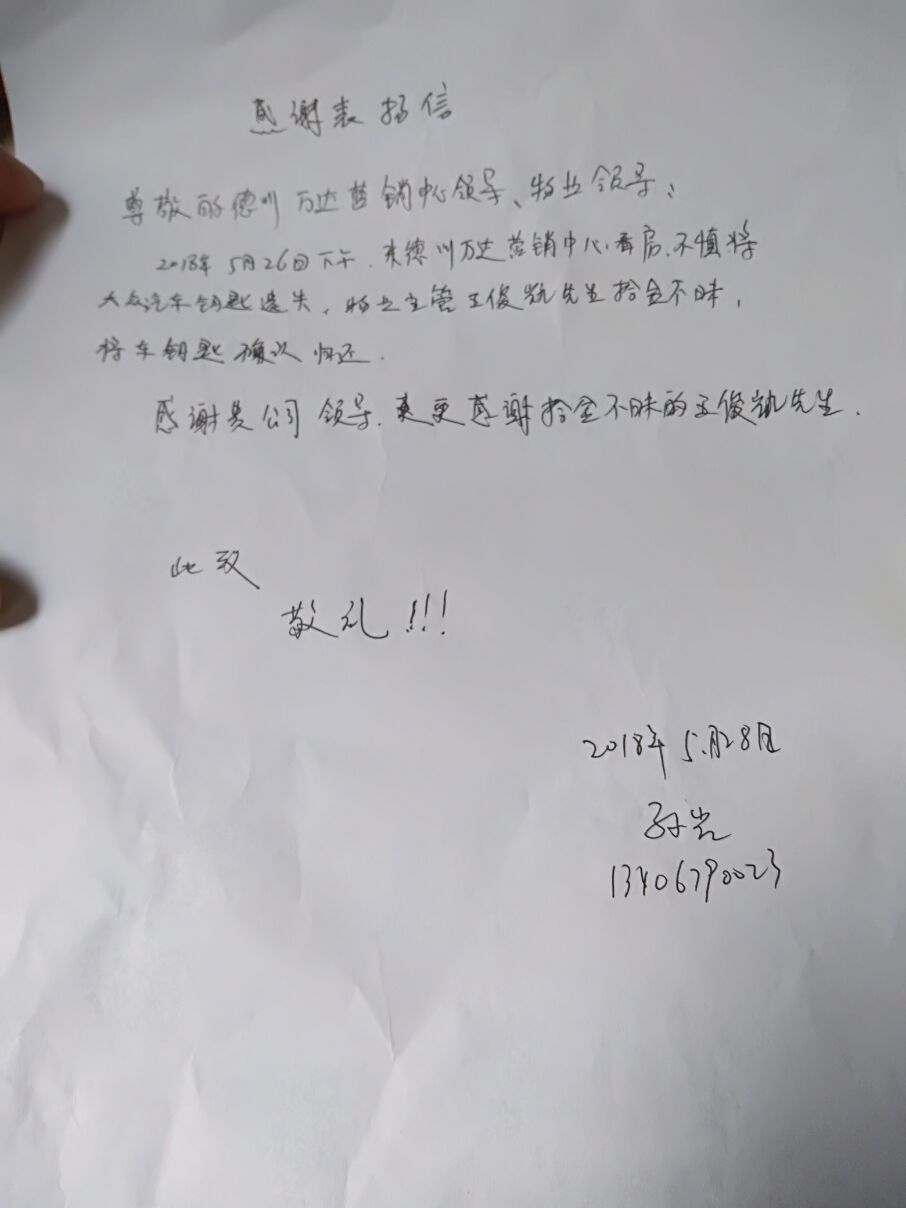 感谢表扬信
尊敬的德州万达营销中心领导、物业领导：
2018年5月26日下午，来德州万达营销中心看房，不慎将
大众汽车钥匙遗失，物业主管王俊凯先生拾金不昧，
将车钥匙确认归还.
感谢贵公司领导，更感谢拾金不昧的王俊凯先生.
此致
敬礼!!!
2018年5月28日
孙
13406790023